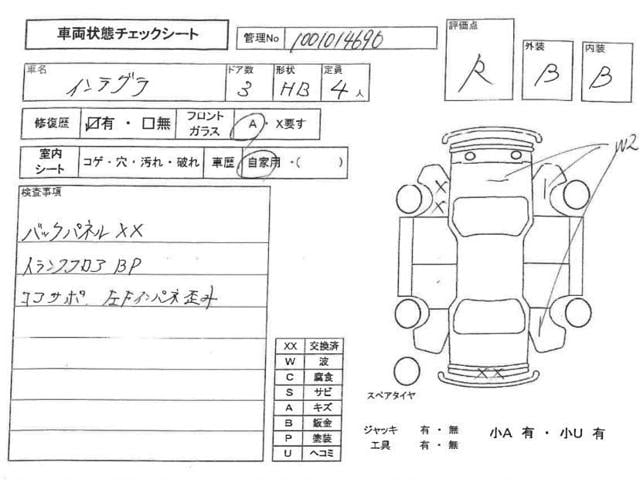 車両状態チェックシート
管理No 1001014690
評価点 R
外装 B
内装 B
車名 インテグラ
ドア数 3
形状 HB
定員 4人
修復歴 ☑有・□無
フロントガラス A・X要す
室内シート コゲ・穴・汚れ・破れ
車歴 自家用・( )
検査事項
バックパネル XX
トランクフロア BP
コアサポ 左Fインパネ歪み
W2
X
X
XX
XX 交換済
W 波
C 腐食
S サビ
A キズ
B 鈑金
P 塗装
U ヘコミ
スペアタイヤ
ジャッキ 有・無
工具 有・無
小A 有・小U 有